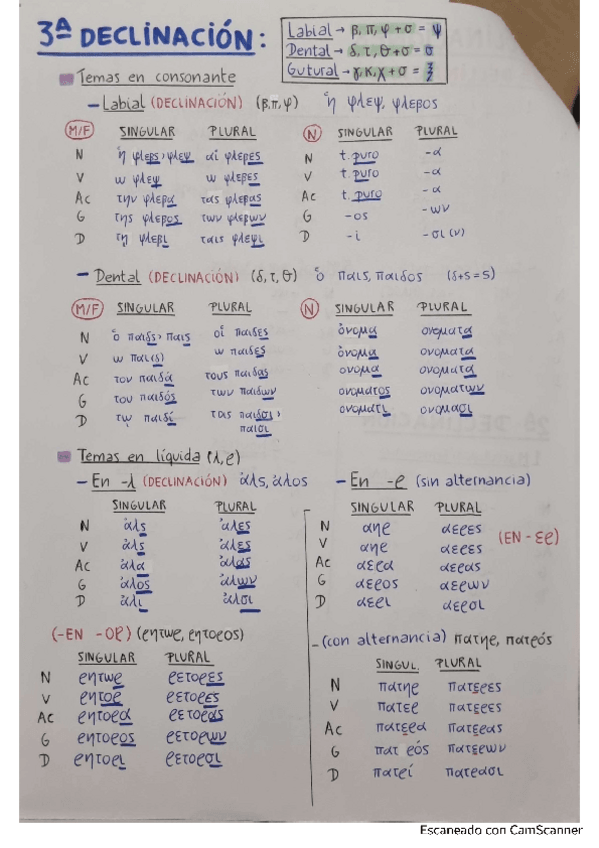 3ª DECLINACIÓN:
Labial → β, π, φ + σ = ψ
Dental → δ, τ, θ + σ = σ
Gutural → γ, κ, χ + σ = ξ
Temas en consonante
– Labial (DECLINACIÓN) (β, π, φ) ἡ φλεψ, φλεβος
M/F SINGULAR PLURAL
N ἡ φλεβς > φλεψ αἱ φλεβες
V ω φλεψ ω φλεβες
Ac την φλεβα τας φλεβας
G της φλεβος των φλεβων
D τη φλεβι ταις φλεψι
N SINGULAR PLURAL
N t. puro -α
V t. puro -α
Ac t. puro -α
G -ος -ων
D -ι -σι (ν)
– Dental (DECLINACIÓN) (δ, τ, θ) ὁ παις, παιδος (δ+ς=ς)
M/F SINGULAR PLURAL
N ὁ παιδς > παις οἱ παιδες
V ω παι(ς) ω παιδες
Ac τον παιδά τους παιδας
G του παιδός των παιδων
D τῳ παιδί ταις παιδσι >
παισι
N SINGULAR PLURAL
ὀνομα ονοματα
ὀνομα ονοματα
ονομα ονοματα
ονοματος ονοματων
ονοματι ονομασι
Temas en líquida (λ, ρ)
– En -λ (DECLINACIÓN) ἁλς, ἁλος
SINGULAR PLURAL
N ἁλς ἁλες
V ἁλς ἁλες
Ac ἁλα ἁλας
G ἁλος ἁλων
D ἁλι ἁλσι
– En -ρ (sin alternancia)
SINGULAR PLURAL
(EN - ερ)
N αηρ αερες
V αηρ αερες
Ac αερα αερας
G αερος αερων
D αερι αερσι
(-EN -ορ) (ρητωρ, ρητορος)
SINGULAR PLURAL
N ρητωρ ρετορες
V ρητορ ρετορες
Ac ρητορα ρετορας
G ρητορος ρετορων
D ρητορι ρετορσι
– (con alternancia) πατηρ, πατρός
SINGUL. PLURAL
N πατηρ πατερες
V πατερ πατερες
Ac πατερα πατερας
G πατ ρός πατερων
D πατρί πατρασι
Escaneado con CamScanner